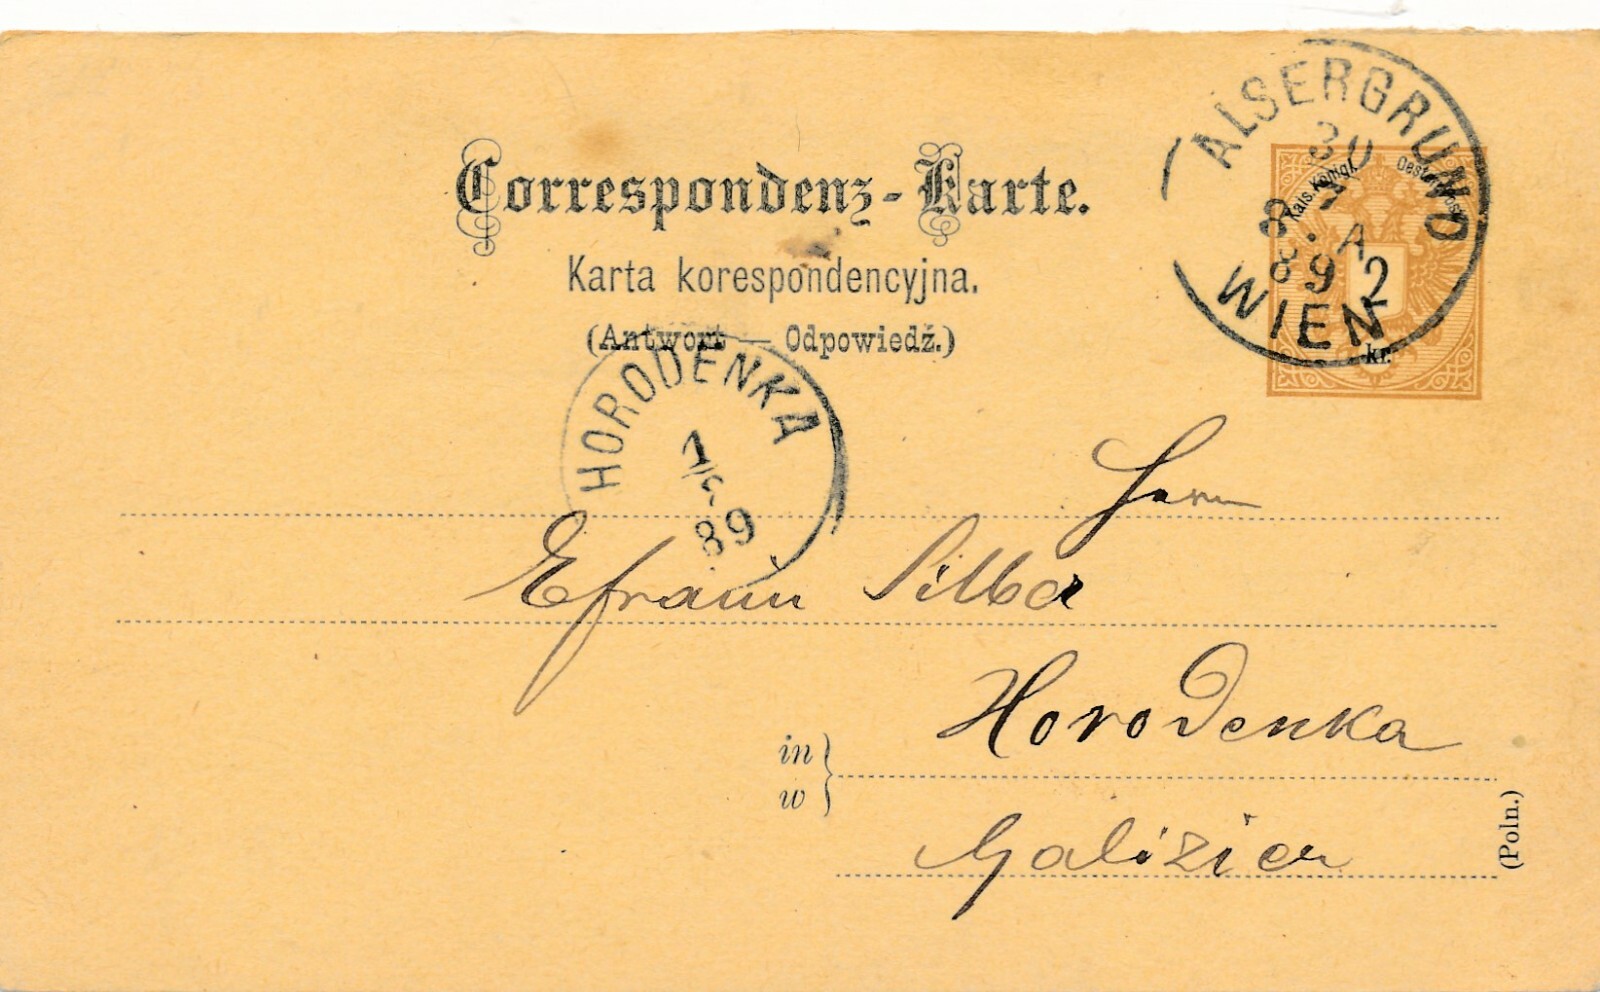 Correspondenz-Karte.
Karta korespondencyjna.
(Antwort — Odpowiedź.)
ALSERGRUND
30
8 . A
8 9
WIEN
Kais. Königl.
2
kr.
HORODENKA
1/5
89
Herrn
Efraim Silber
Horodenka
in
w
Galizien
(Poln.)